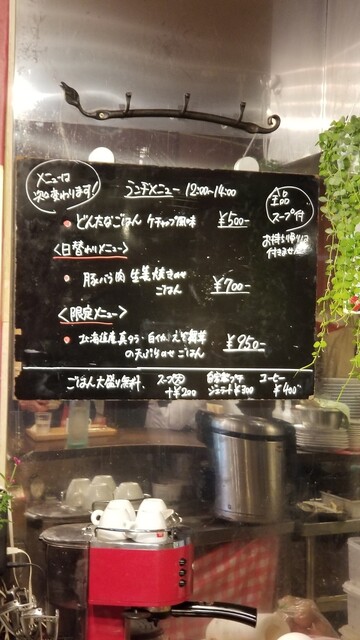 メニューは
次々変わります!
ランチメニュー 12:00~14:00
全品
スープ付
お持ち帰りは
付きません
どんなごはん ケチャップ風味 ¥500-
<日替わりメニュー>
豚バラ肉 生姜焼きのせ
ごはん ¥700-
<限定メニュー>
北海道産真タラ・白イカ・えび舞茸
の天ぷらのせ ごはん ¥950-
ごはん大盛り無料、
スープ
+¥200
自家製
ジェラート¥300
コーヒー
¥400